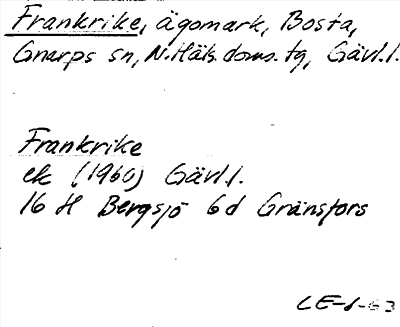 Frankrike, ägomark, Bosta,
Gnarps sn, N. Häls. doms. tg, Gävl.l.
Frankrike
ek (1960) Gävl.l.
16 H Bergsjö 6d Gränsfors
LE-1-63